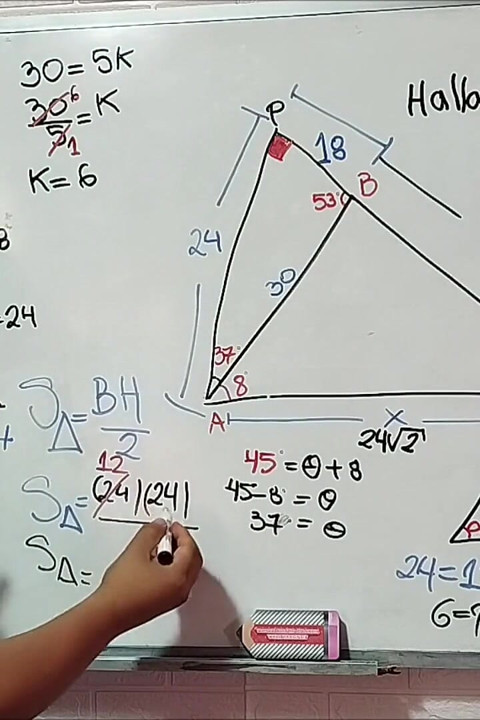 30 = 5K
30 6 = K
5 1
K = 6
8
24
Halla
P
18
B
53°
24
30
37°
8°
A
x
24√2
S△ = BH
2
+
12
S△ = (24)(24)
S△ =
45° = θ + 8
45 - 8° = θ
37° = θ
24 = 1
6 =